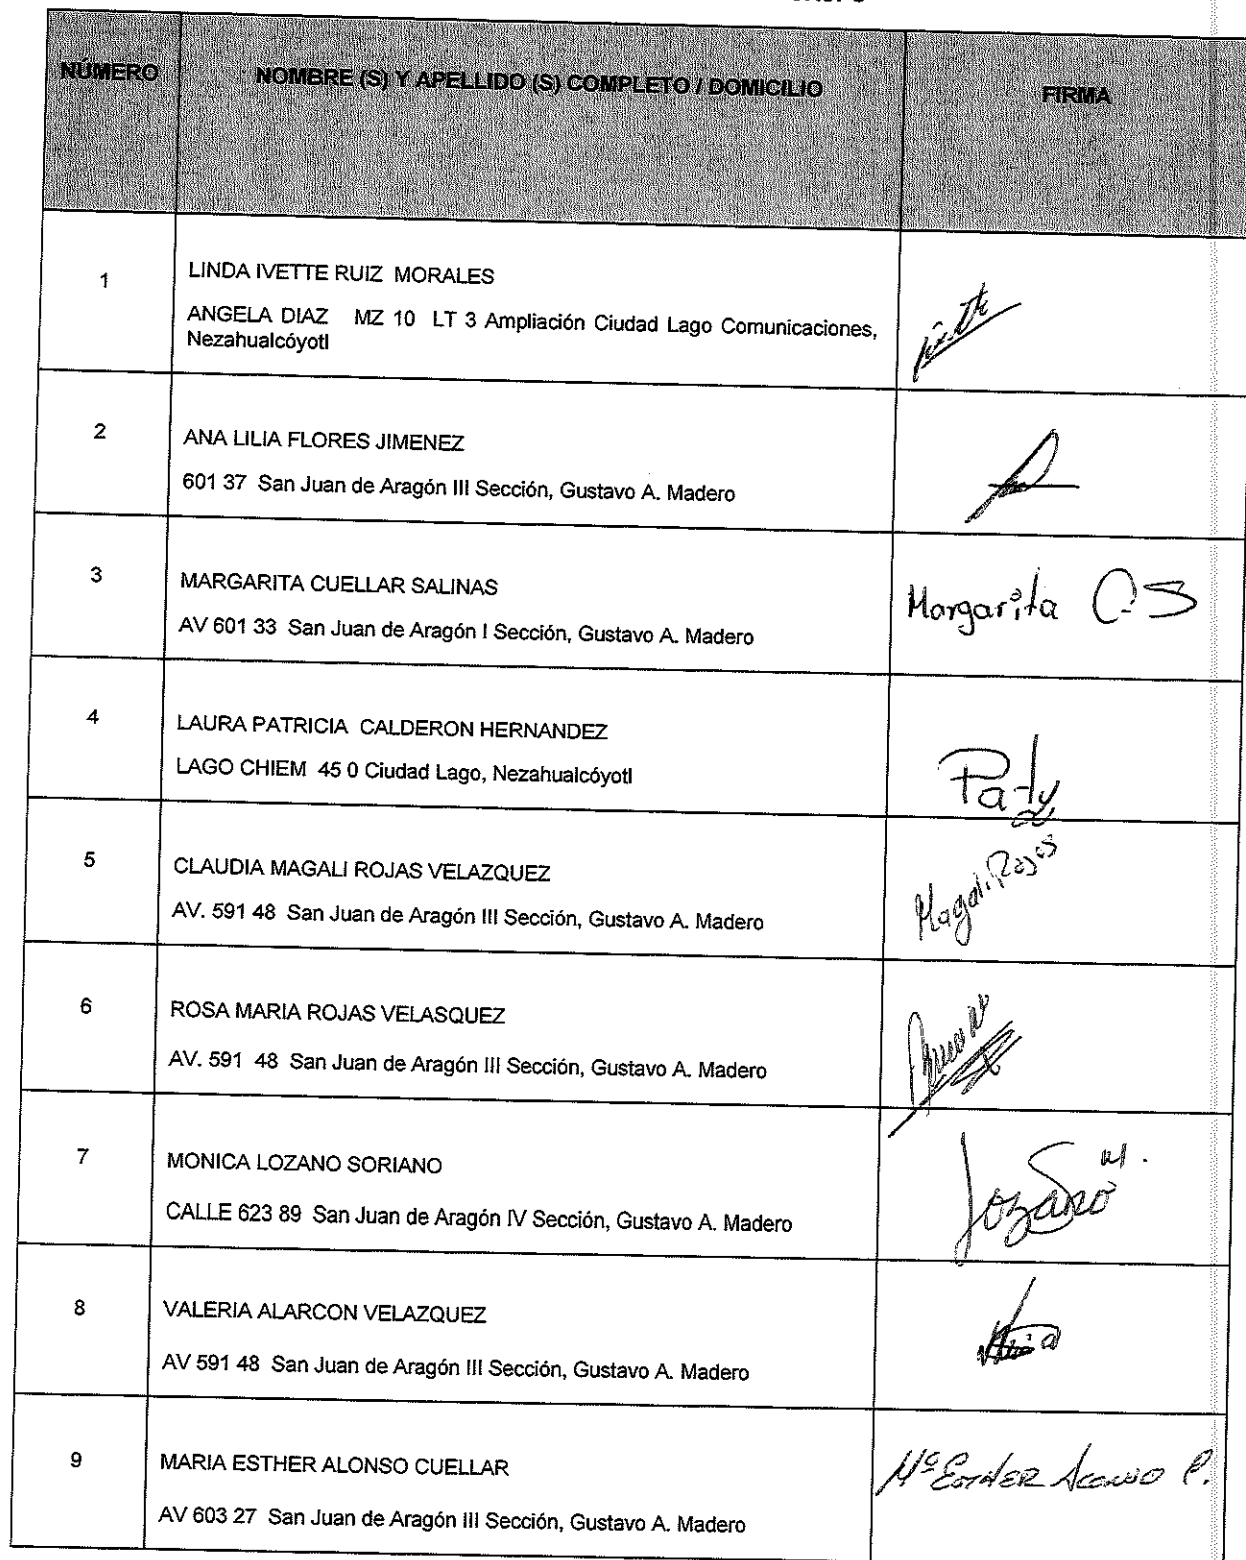 NÚMERO NOMBRE (S) Y APELLIDO (S) COMPLETO / DOMICILIO FIRMA
1 LINDA IVETTE RUIZ MORALES
ANGELA DIAZ MZ 10 LT 3 Ampliación Ciudad Lago Comunicaciones,
Nezahualcóyotl
2 ANA LILIA FLORES JIMENEZ
601 37 San Juan de Aragón III Sección, Gustavo A. Madero
3 MARGARITA CUELLAR SALINAS Margarita C.S
AV 601 33 San Juan de Aragón I Sección, Gustavo A. Madero
4 LAURA PATRICIA CALDERON HERNANDEZ
LAGO CHIEM 45 0 Ciudad Lago, Nezahualcóyotl Paty
5 CLAUDIA MAGALI ROJAS VELAZQUEZ Magali Rojas
AV. 591 48 San Juan de Aragón III Sección, Gustavo A. Madero
6 ROSA MARIA ROJAS VELASQUEZ
AV. 591 48 San Juan de Aragón III Sección, Gustavo A. Madero
7 MONICA LOZANO SORIANO Lozano M.
CALLE 623 89 San Juan de Aragón IV Sección, Gustavo A. Madero
8 VALERIA ALARCON VELAZQUEZ
AV 591 48 San Juan de Aragón III Sección, Gustavo A. Madero
9 MARIA ESTHER ALONSO CUELLAR Ma Esther Alonso C.
AV 603 27 San Juan de Aragón III Sección, Gustavo A. Madero